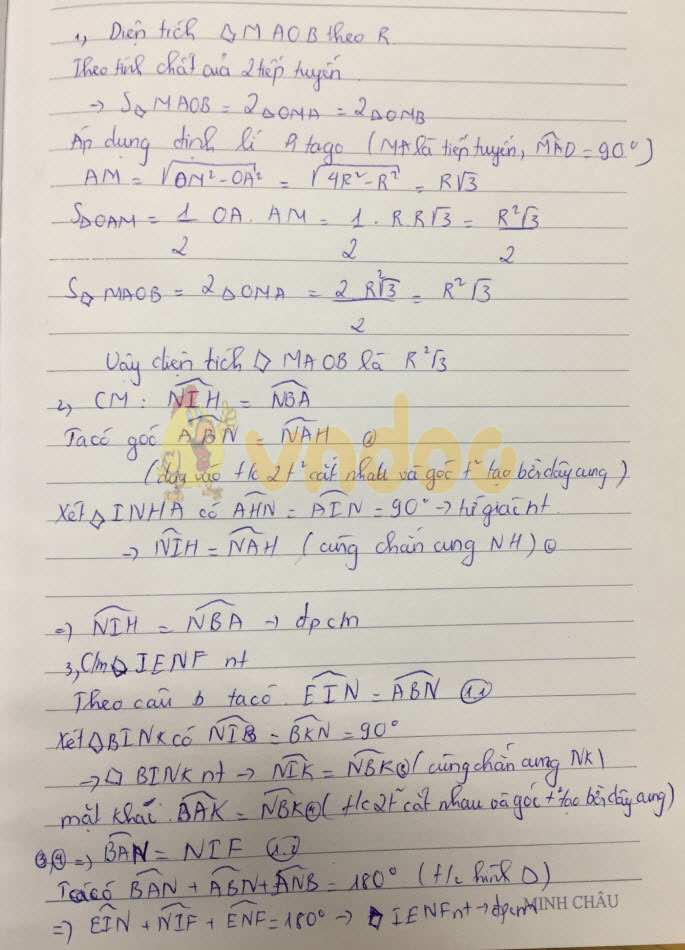 1, Diện tích △ MAOB theo R.
Theo tính chất của 2 tiếp tuyến
→ S△ MAOB = 2△OMA = 2△OMB
Áp dụng định lí Pitago (MA là tiếp tuyến, MAO = 90°)
AM = √OM² - OA² = √4R² - R² = R√3
S△OAM = 1/2 OA. AM = 1/2 . R. R√3 = R²√3/2
S▱ MAOB = 2△OMA = 2 R²√3/2 = R²√3
Vậy diện tích ▱ MAOB là R²√3
2, CM: NIH = NBA
Ta có góc ABN = NAH
(dựa vào t/c 2t² cắt nhau và góc t² tạo bởi dây cung)
Xét △ INHA có AHN = AIN = 90° → tứ giác nt
→ NIH = NAH (cùng chắn cung NH)
vndoc
=) NIH = NBA → đpcm
3, Cm ▱ IENF nt
Theo câu b ta có. EIN = ABN (1.1)
Xét △BINK có NIB = BKN = 90°
→ ▱ BINK nt → NIK = NBK (cùng chắn cung NK)
mặt khác. BAK = NBK (t/c 2t² cắt nhau và góc t² tạo bởi dây cung)
3,4 =) BAN = NIF (1.2)
Ta có BAN + ABN + ANB = 180° (t/c hình △)
=) EIN + NIF + ENF = 180° → ▱ IENF nt → đpcm
MINH CHÂU